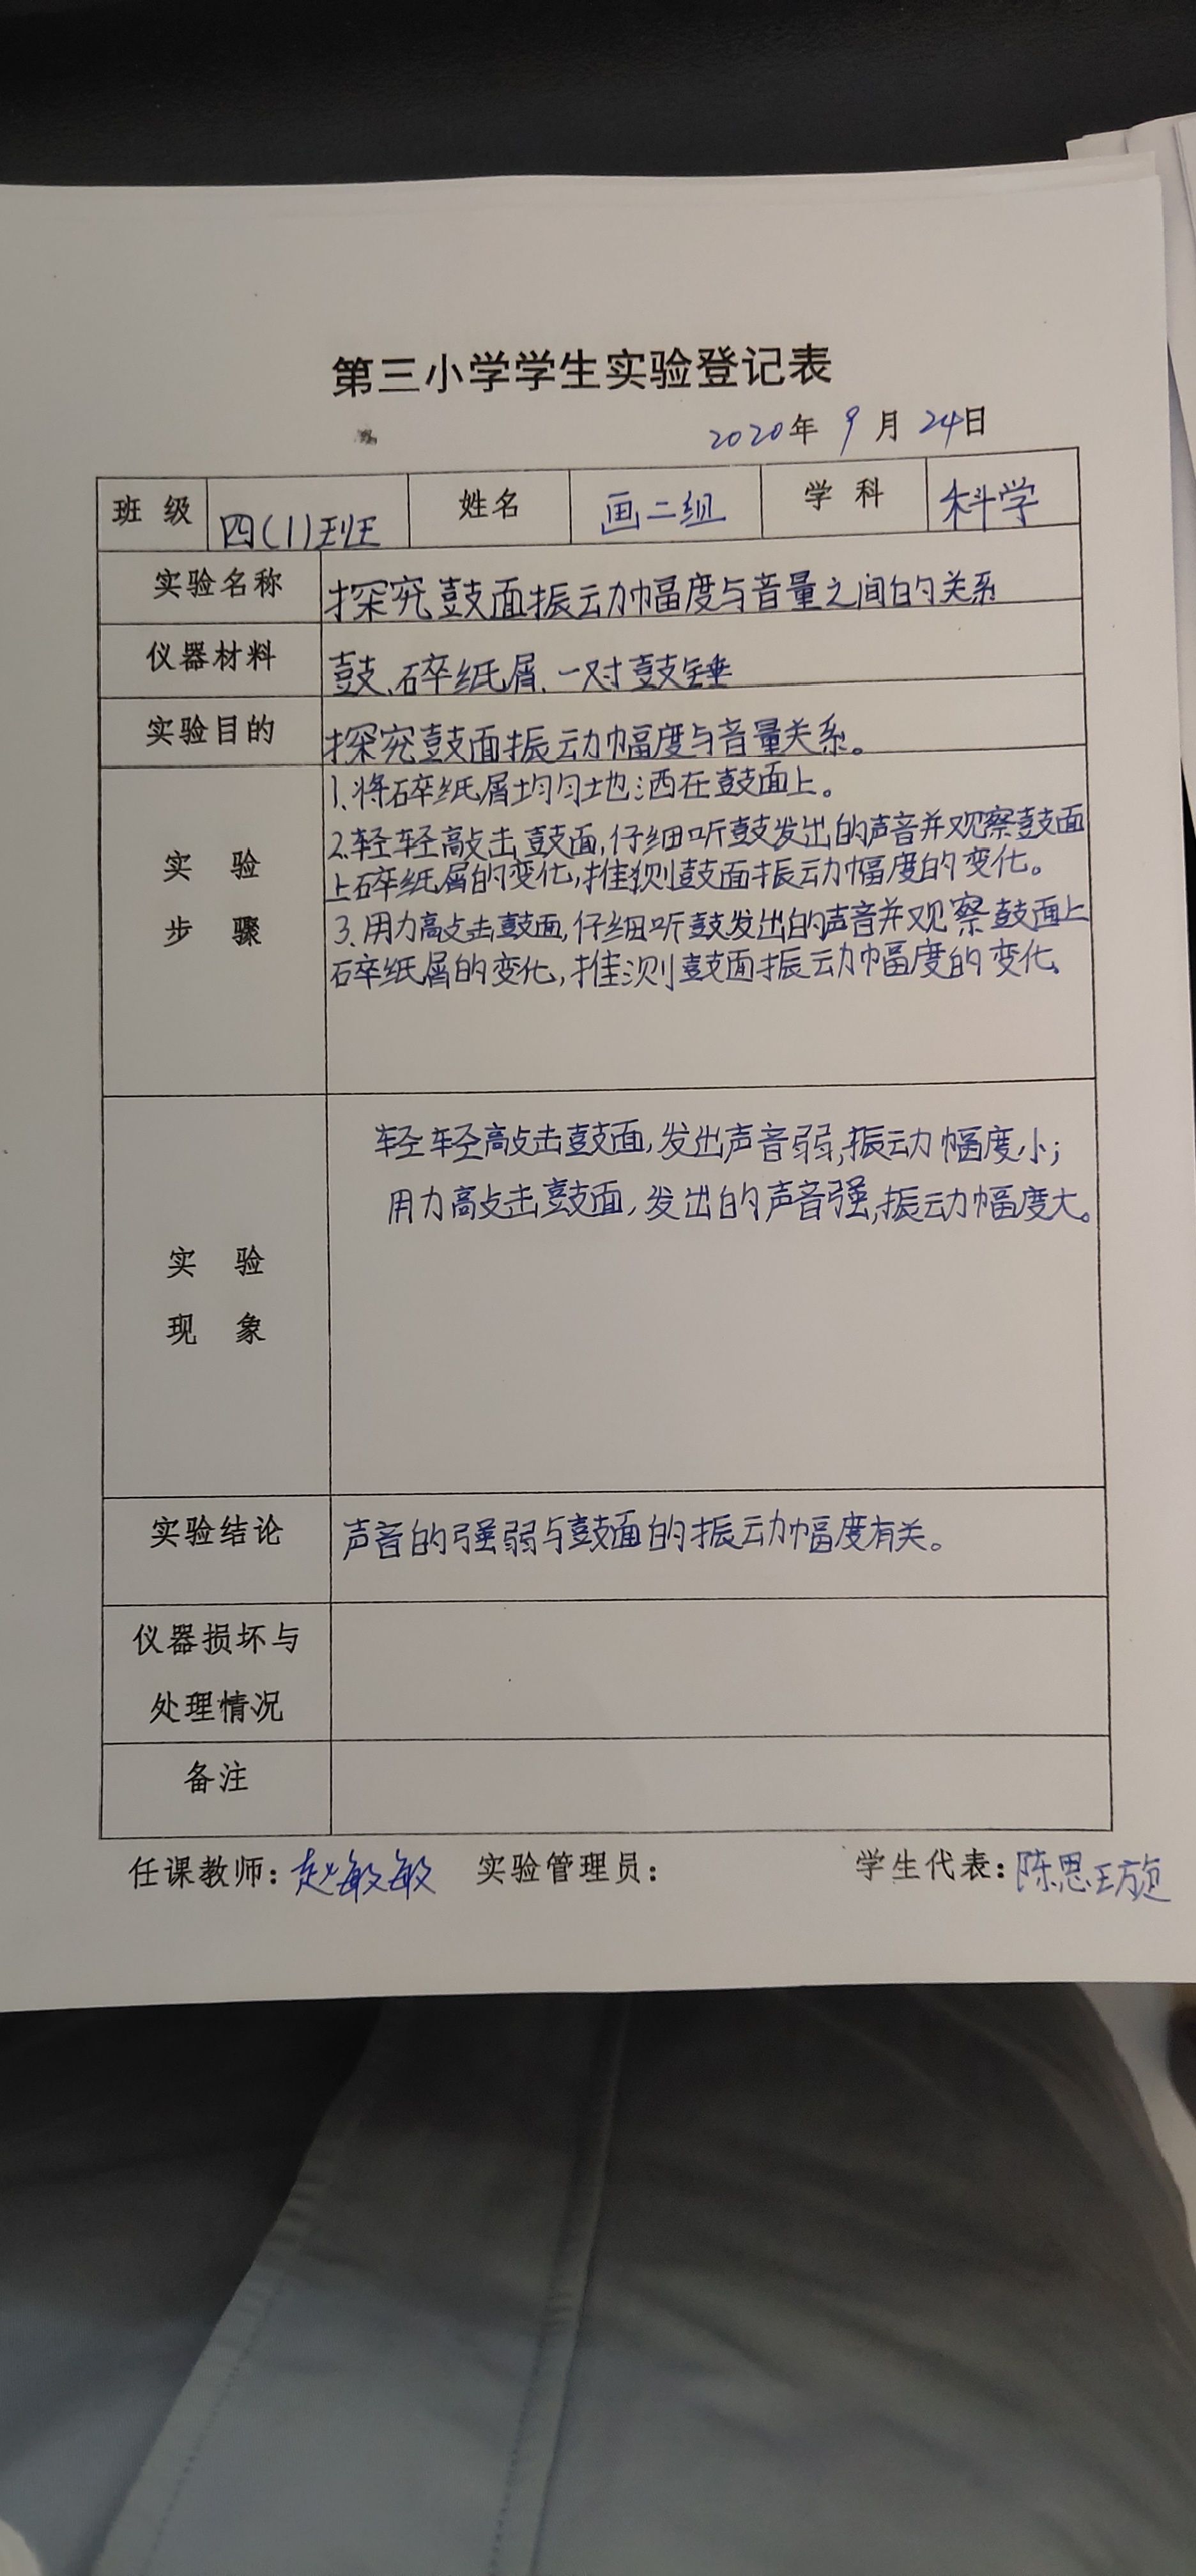 第三小学学生实验登记表
2020年 9 月 24日
班 级 四(1)班 姓名 画二组 学 科 科学
实验名称 探究鼓面振动幅度与音量之间的关系
仪器材料 鼓、碎纸屑、一对鼓锤
实验目的 探究鼓面振动幅度与音量关系。
实 验
步 骤
1、将碎纸屑均匀地洒在鼓面上。
2、轻轻敲击鼓面,仔细听鼓发出的声音并观察鼓面
上碎纸屑的变化,推测鼓面振动幅度的变化。
3、用力敲击鼓面,仔细听鼓发出的声音并观察鼓面上
碎纸屑的变化,推测鼓面振动幅度的变化、
实 验
现 象
轻轻敲击鼓面,发出声音弱,振动幅度小;
用力敲击鼓面,发出的声音强,振动幅度大。
实验结论 声音的强弱与鼓面的振动幅度有关。
仪器损坏与
处理情况
备注
任课教师:赵敏敏 实验管理员: 学生代表:陈思璇